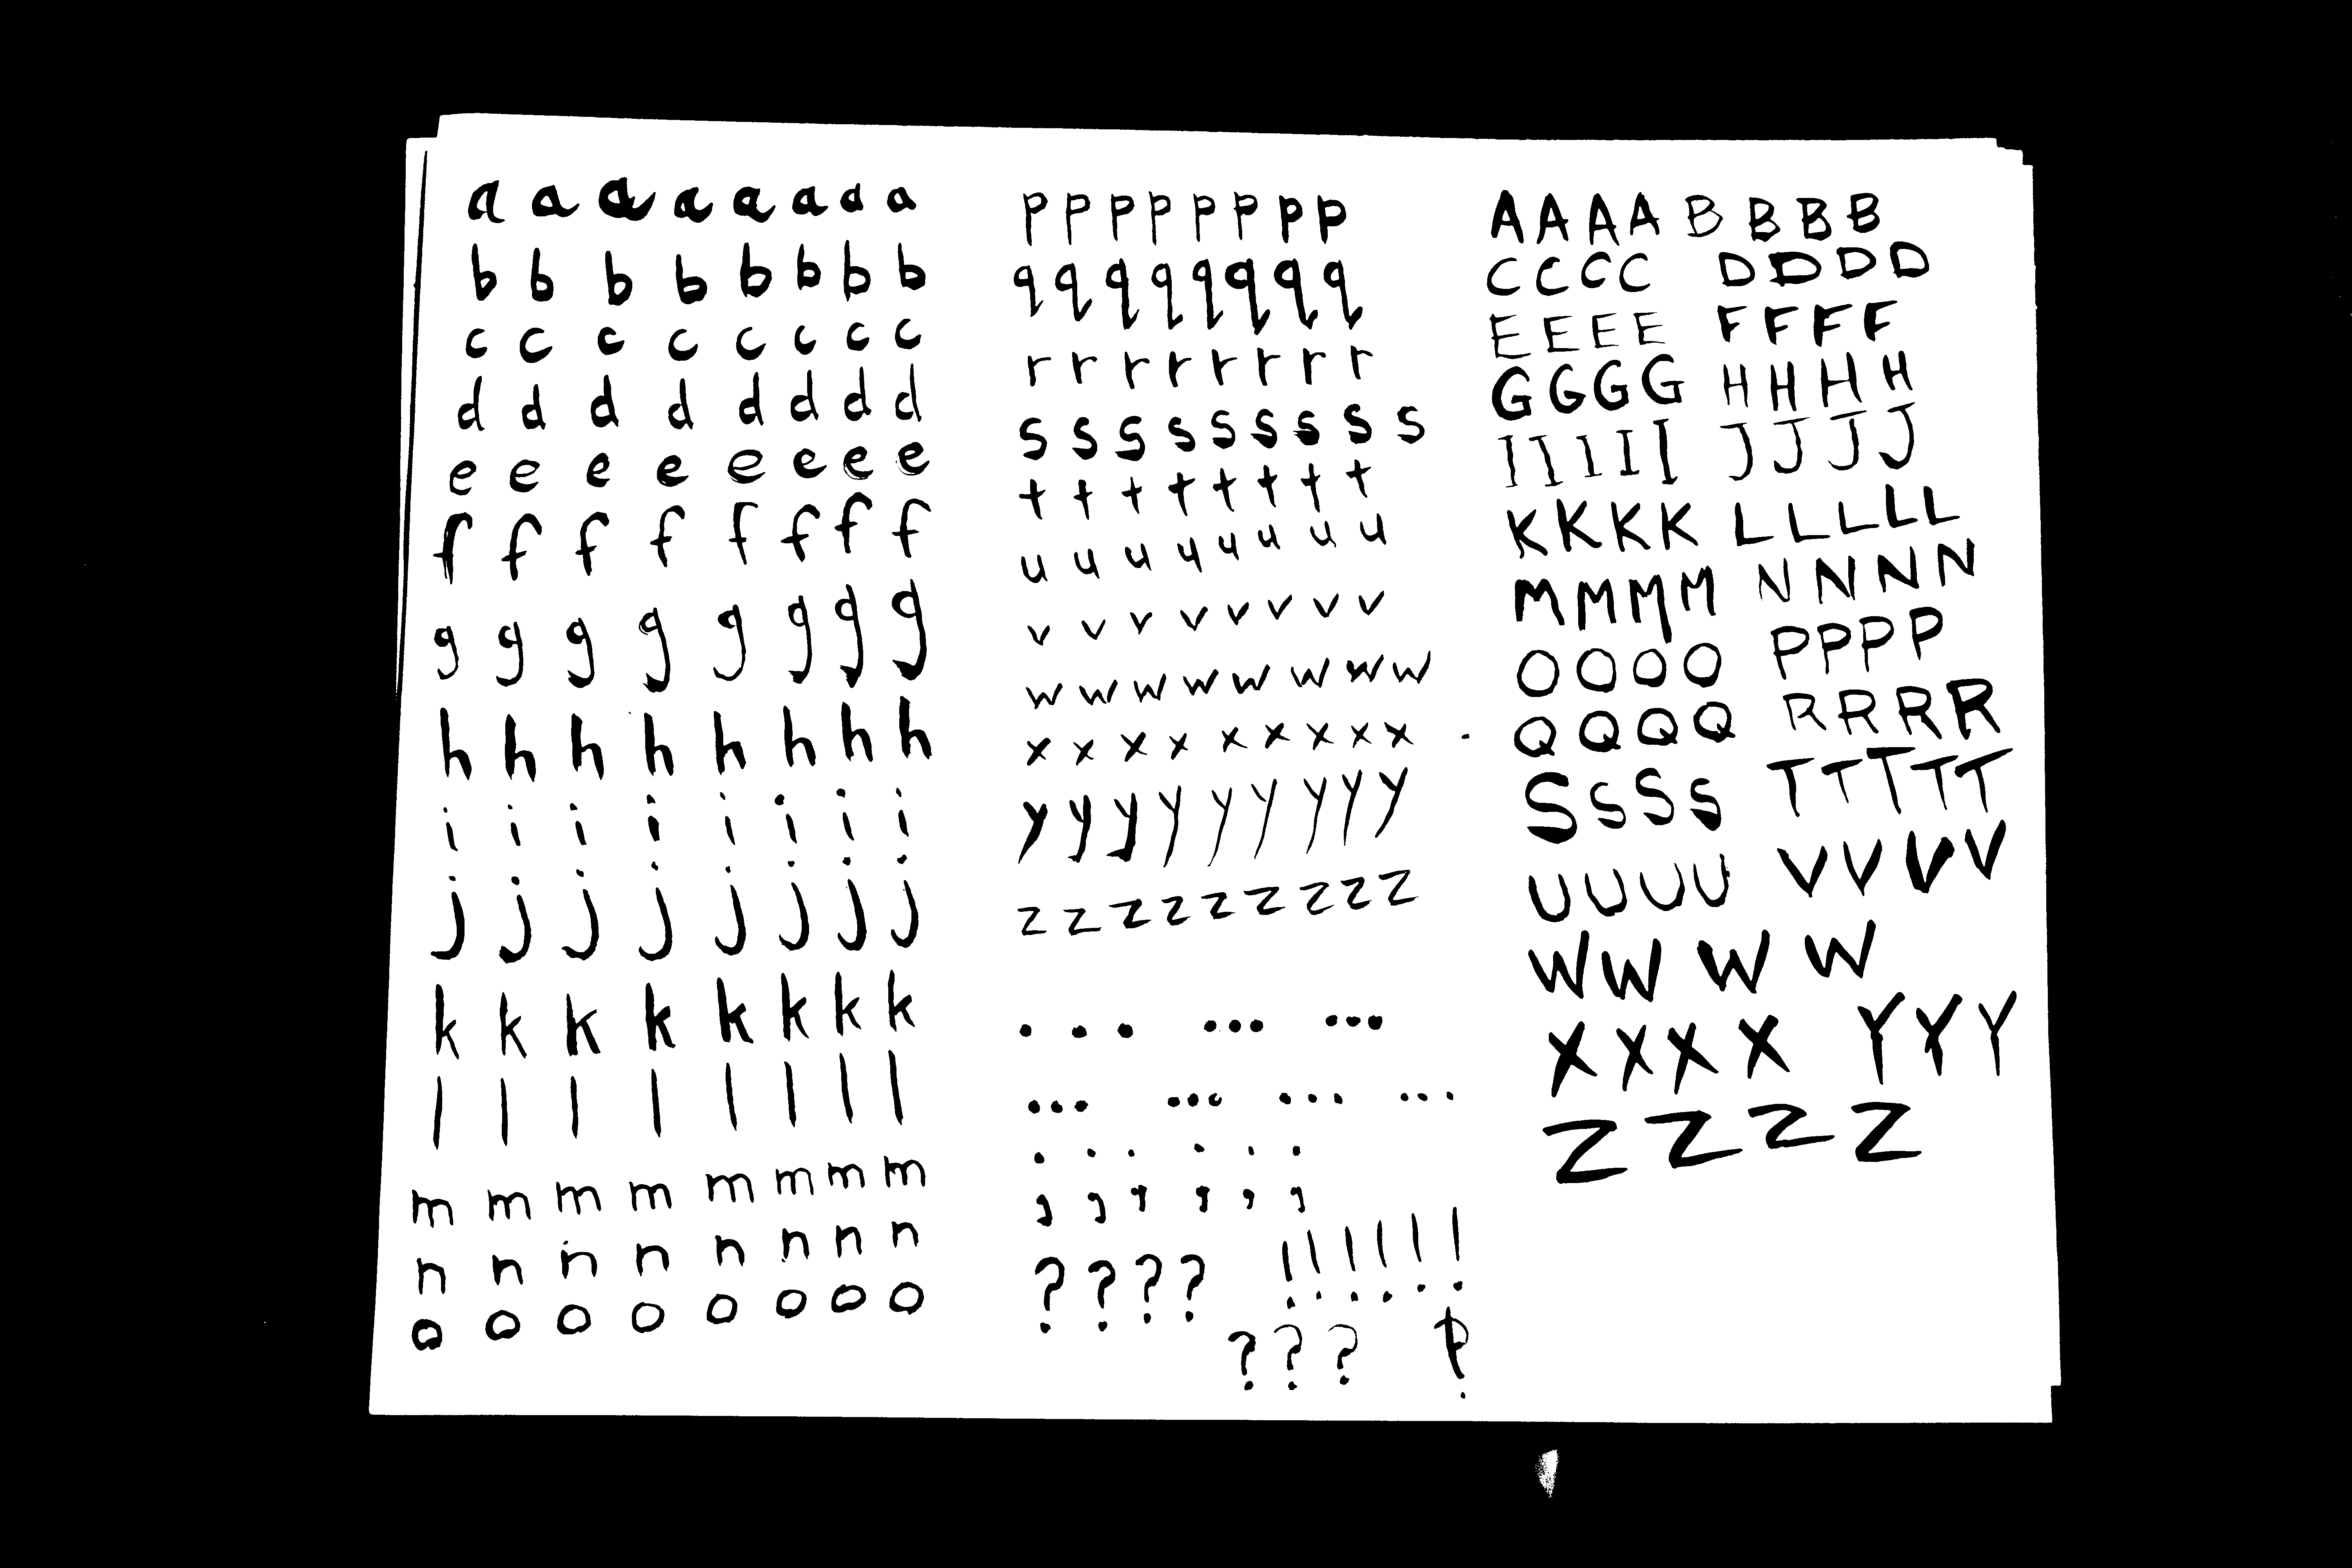 a a a a a a a a
b b b b b b b b
c c c c c c c c
d d d d d d d d
e e e e e e e e
f f f f f f f f
g g g g g g g g
h h h h h h h h
i i i i i i i i
j j j j j j j j
k k k k k k k k
l l l l l l l l
m m m m m m m m
n n n n n n n n
o o o o o o o o
p p p p p p p p
q q q q q q q q
r r r r r r r r
s s s s s s s s s
t t t t t t t t
u u u u u u u u
v v v v v v v v
w w w w w w w w
x x x x x x x x x
y y y y y y y y y
z z z z z z z z z
. . . ... ...
... ... ... ...
; ; ; ; ; ;
? ? ? ? ! ! ! ! ! !
? ? ? ‽
A A A A B B B B
C C C C D D D D
E E E E F F F F
G G G G H H H H
I I I I I J J J J
K K K K L L L L L
M M M M N N N N
O O O O P P P P
Q Q Q Q R R R R
S S S S T T T T T
U U U U V V V V
W W W W
X X X X Y Y Y
Z Z Z Z